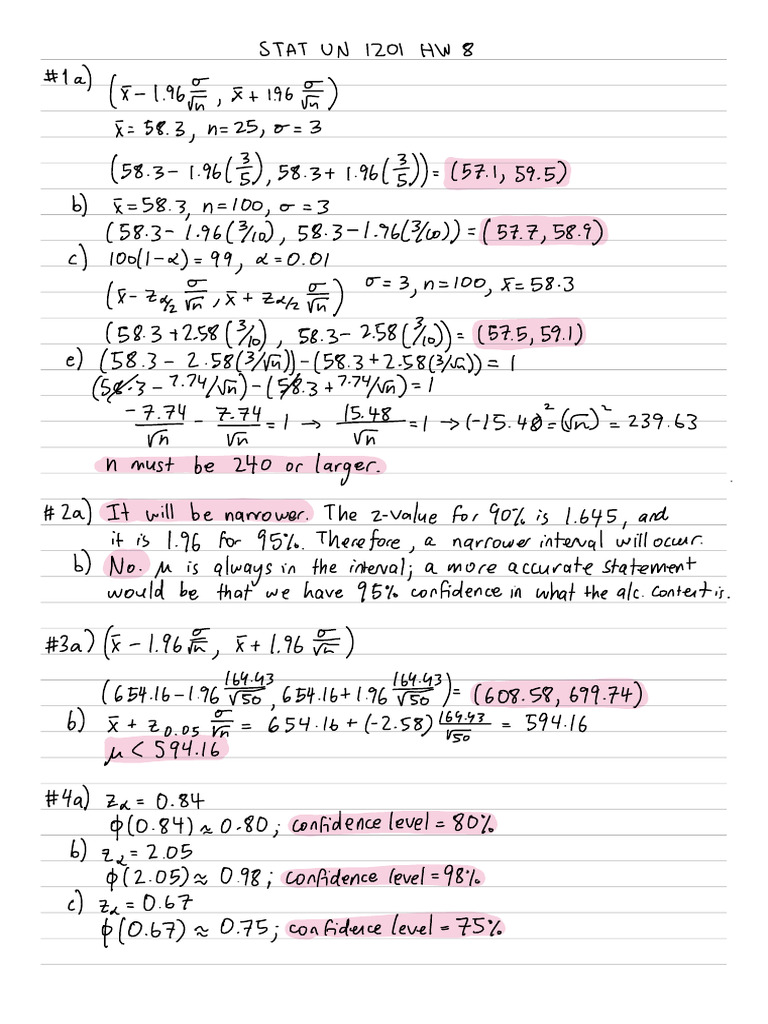 STAT UN 1201 HW 8
#1a) (x̄ - 1.96 σ/√n , x̄ + 1.96 σ/√n)
x̄ = 58.3, n=25, σ = 3
(58.3 - 1.96(3/5), 58.3 + 1.96(3/5)) = (57.1, 59.5)
b) x̄ = 58.3, n=100, σ = 3
(58.3 - 1.96(3/10), 58.3 - 1.96(3/10)) = (57.7, 58.9)
c) 100(1-α) = 99, α = 0.01
(x̄ - z_α/2 σ/√n, x̄ + z_α/2 σ/√n) σ = 3, n = 100, x̄ = 58.3
(58.3 + 2.58(3/10), 58.3 - 2.58(3/10)) = (57.5, 59.1)
e) (58.3 - 2.58(3/√n)) - (58.3 + 2.58(3/√n)) = 1
(58.3 - 7.74/√n) - (58.3 + 7.74/√n) = 1
-7.74/√n - 7.74/√n = 1 → 15.48/√n = 1 → (-15.48)² = (√n)² = 239.63
n must be 240 or larger.
#2a) It will be narrower. The z-value for 90% is 1.645, and
it is 1.96 for 95%. Therefore, a narrower interval will occur.
b) No. μ is always in the interval; a more accurate statement
would be that we have 95% confidence in what the alc. content is.
#3a) (x̄ - 1.96 σ/√n, x̄ + 1.96 σ/√n)
(654.16 - 1.96 164.43/√50, 654.16 + 1.96 164.43/√50) = (608.58, 699.74)
b) x̄ + z_0.05 σ/√n = 654.16 + (-2.58) 164.43/√50 = 594.16
μ < 594.16
#4a) z_α = 0.84
ϕ(0.84) ≈ 0.80; confidence level = 80%
b) z_α = 2.05
ϕ(2.05) ≈ 0.98; confidence level = 98%
c) z_α = 0.67
ϕ(0.67) ≈ 0.75; confidence level = 75%